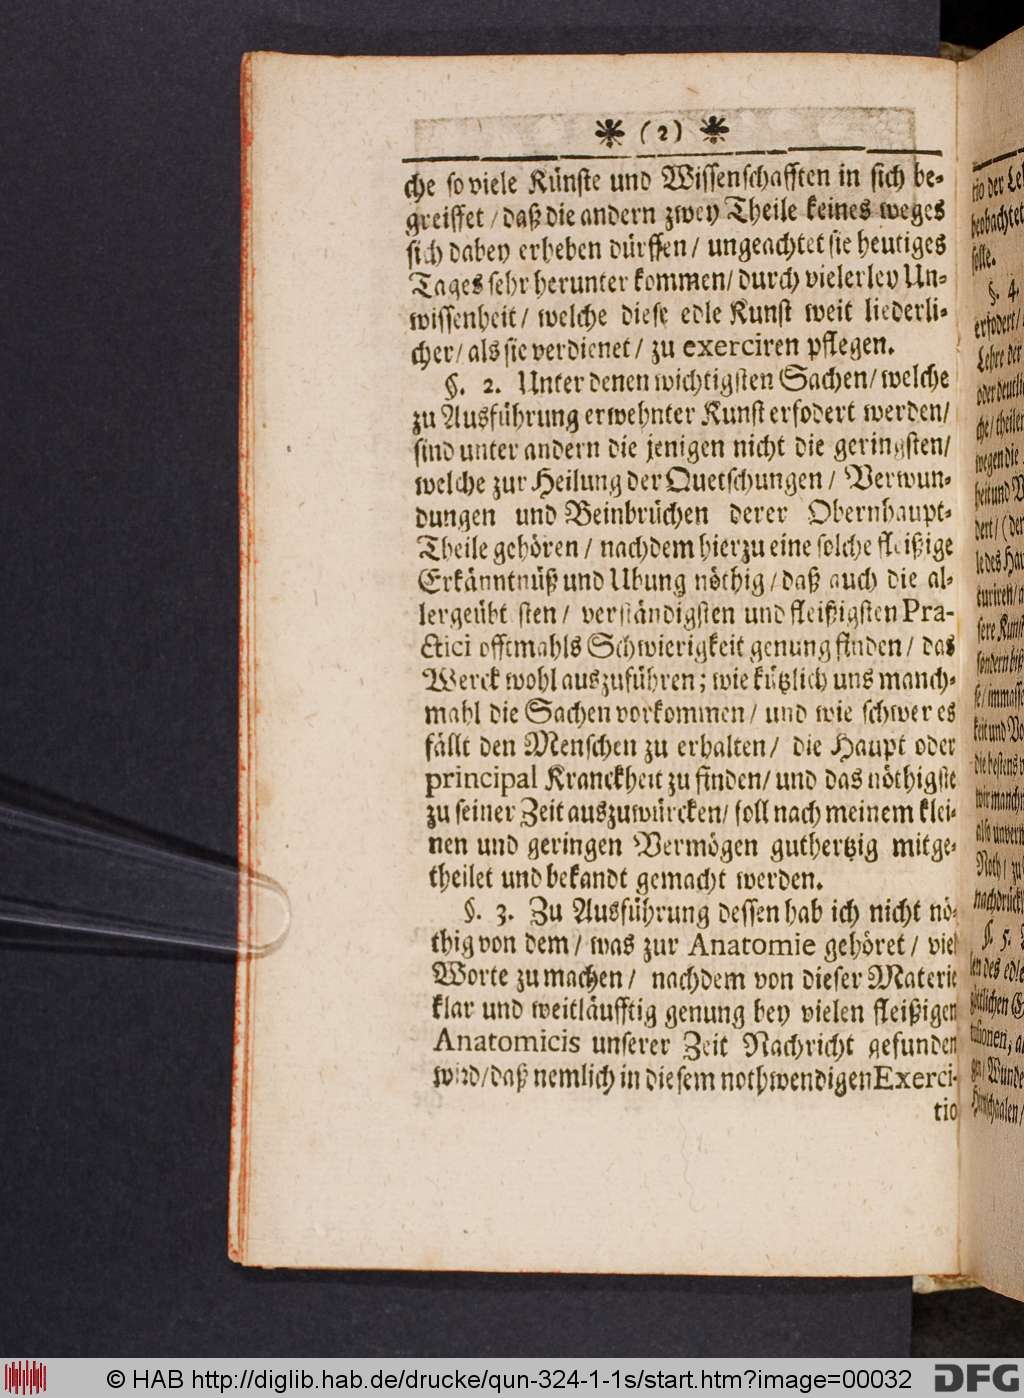 * (2) *
che so viele Künste und Wissenschafften in sich be-
greiffet / daß die andern zwey Theile keines weges
sich dabey erheben dürffen / ungeachtet sie heutiges
Tages sehr herunter kommen / durch vielerley Un-
wissenheit / welche diese edle Kunst weit liederli-
cher / als sie verdienet / zu exerciren pflegen.
§. 2. Unter denen wichtigsten Sachen / welche
zu Ausführung erwehnter Kunst erfodert werden /
sind unter andern die jenigen nicht die geringsten /
welche zur Heilung der Quetschungen / Verwun-
dungen und Beinbrüchen derer Obernhaupt-
Theile gehören / nachdem hierzu eine solche fleißige
Erkänntnüß und Ubung nöthig / daß auch die al-
lergeübtsten / verständigsten und fleißigsten Pra-
ctici offtmahls Schwierigkeit genung finden / das
Werck wohl auszuführen; wie kützlich uns manch-
mahl die Sachen vorkommen / und wie schwer es
fällt den Menschen zu erhalten / die Haupt oder
principal Kranckheit zu finden / und das nöthigste
zu seiner Zeit auszuwürcken / soll nach meinem klei-
nen und geringen Vermögen guthertzig mitge-
theilet und bekandt gemacht werden.
§. 3. Zu Ausführung dessen hab ich nicht nö-
thig von dem / was zur Anatomie gehöret / viel
Worte zu machen / nachdem von dieser Materie
klar und weitläufftig genung bey vielen fleißigen
Anatomicis unserer Zeit Nachricht gefunden
wird / daß nemlich in diesem nothwendigen Exerci-
tio
tio der
beobachtet
solle.
§. 4.
erfodert /
Lehre der
che / theilen
wegen die
heit und
dert / (der
turiren /
sere Kunst
sondern
se / immassen
keit und
die bestens
wir manch
Noth / zu
§. 5.
len des edle
© HAB http://diglib.hab.de/drucke/qun-324-1-1s/start.htm?image=00032
DFG